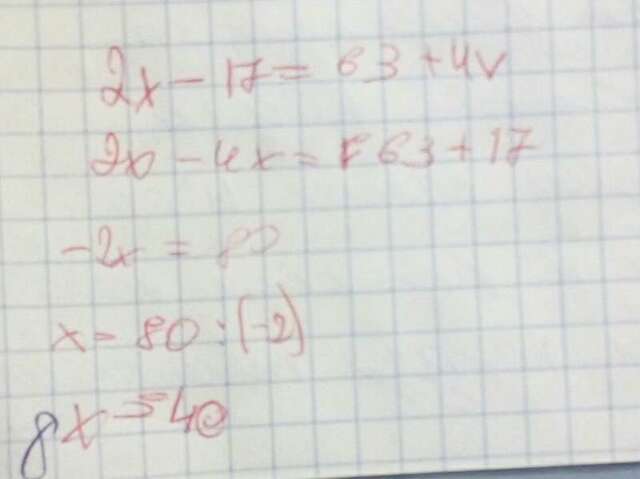 2x - 17 = 63 + 4x
2x - 4x = 63 + 17
-2x = 80
x = 80 : (-2)
x = 40